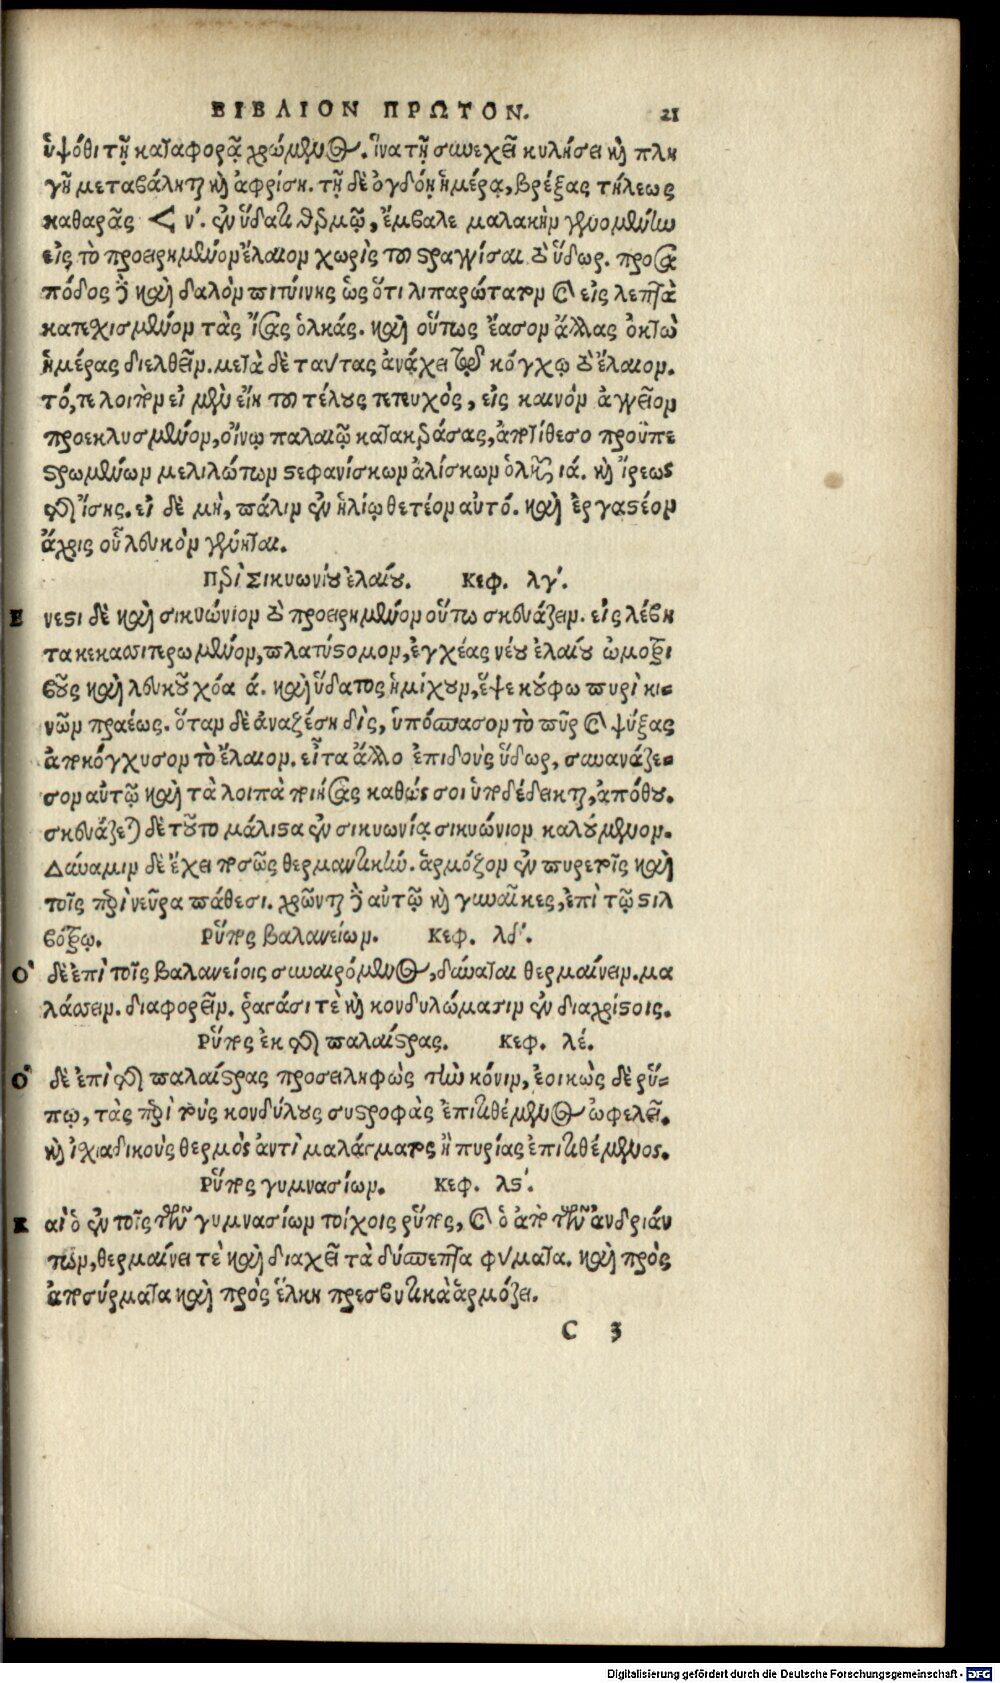 ΒΙΒΛΙΟΝ ΠΡΩΤΟΝ. 21
ὑψόθι τῇ καταφορᾷ χρώμενος. ἵνα τῇ συνεχεῖ κυλήσει καὶ πλη
γῇ μεταβάληται καὶ ἀφρίσῃ. τῇ δὲ ὀγδόῃ ἡμέρᾳ, βρέξας τήλεως
καθαρᾶς < ν΄. ἐν ὕδατι θερμῷ, ἔμβαλε μαλακὴν γενομένην
εἰς τὸ προειρημένον ἔλαιον χωρὶς τοῦ στραγγίσαι τὸ ὕδωρ. προσα
πόδος δὲ καὶ δαλὸν πιτύινης ὡς ὅτι λιπαρώτατον καὶ εἰς λεπτὰ
κατεσχισμένον τὰς ἴσας ὁλκάς. καὶ οὕτως ἔασον ἄλλας ὀκτὼ
ἡμέρας διελθεῖν. μετὰ δὲ ταύτας ἀνάχει τῷ κόγχῳ τὸ ἔλαιον.
τό, τε λοιπὸν εἰ μὲν εἴη τοῦ τέλους τετευχὸς, εἰς καινὸν ἀγγεῖον
προεκλυσμένον, οἴνῳ παλαιῷ κατακεράσας, ἀποτίθεσο προϋπε
στρωμένων μελιλώτων στεφανίσκων ἁλίσκων ὁλκῆς ιά. καὶ ἴρεως
τῆς ἴσης. εἰ δὲ μὴ, πάλιν ἐν ἡλίῳ θετέον αὐτό. καὶ ἐργαστέον
ἄχρις οὗ λευκὸν γένηται.
Περὶ Σικυωνίου ἐλαίου. Κεφ. λγ΄.
Ενεστι δὲ καὶ σικυώνιον τὸ προειρημένον οὕτω σκευάζειν. εἰς λέβη
τα κεκασσιτερωμένον, πλατύστομον, ἐγχέας νέου ἐλαίου ὠμοτρι
βοῦς καὶ λευκοῦ χόα ά. καὶ ὕδατος ἡμίχουν, ἕψε κούφω πυρὶ κι-
νῶν πραέως. ὅταν δὲ ἀναζέσῃ δὶς, ὑπόσπασον τὸ πῦρ καὶ ψύξας
ἀποκόγχυσον τὸ ἔλαιον. εἶτα ἄλλο ἐπιδοὺς ὕδωρ, συνανάζε-
σον αὐτῷ καὶ τὰ λοιπὰ ποιήσας καθώς σοι ὑποδέδεικται, ἀπόθου.
σκευάζεται δὲ τοῦτο μάλιστα ἐν σικυωνίᾳ σικυώνιον καλούμενον.
Δύναμιν δὲ ἔχει ποσῶς θερμαντικήν. ἁρμόζον ἐν πυρετοῖς καὶ
τοῖς περὶ νεῦρα πάθεσι. χρῶνται δὲ αὐτῷ καὶ γυναῖκες, ἐπὶ τῷ στιλ
βότρῳ. Ρύπος βαλανείων. Κεφ. λδ΄.
Ὁ δὲ ἐπὶ τοῖς βαλανείοις συναιρόμενος, δύναται θερμαίνειν. μα
λάσσειν. διαφορεῖν. ῥαγάσι τὲ καὶ κονδυλώμασιν ἐν διαχρίστοις.
Ρύπος ἐκ τῆς παλαίστρας. Κεφ. λέ.
Ὁ δὲ ἐπὶ τῆς παλαίστρας προσειληφὼς τὴν κόνιν, ἐοικὼς δὲ ῥύ-
πῳ, τὰς περὶ τοὺς κονδύλους συστροφὰς ἐπιτιθέμενος ὠφελεῖ.
καὶ ἰσχιαδικοὺς θερμὸς ἀντὶ μαλάγματος ἢ πυρίας ἐπιτιθέμενος.
Ρύπος γυμνασίων. Κεφ. λϛ΄.
Και ὁ ἐν τοῖς τῶν γυμνασίων τοίχοις ῥύπος, καὶ ὁ ἀπὸ τῶν ἀνδριάν
των, θερμαίνει τὲ καὶ διαχεῖ τὰ δύσπεπτα φύματα. καὶ πρὸς
ἀποσύρματα καὶ πρὸς ἕλκη πρεσβυτικὰ ἁρμόζει.
C 3
Digitalisierung gefördert durch die Deutsche Forschungsgemeinschaft - DFG